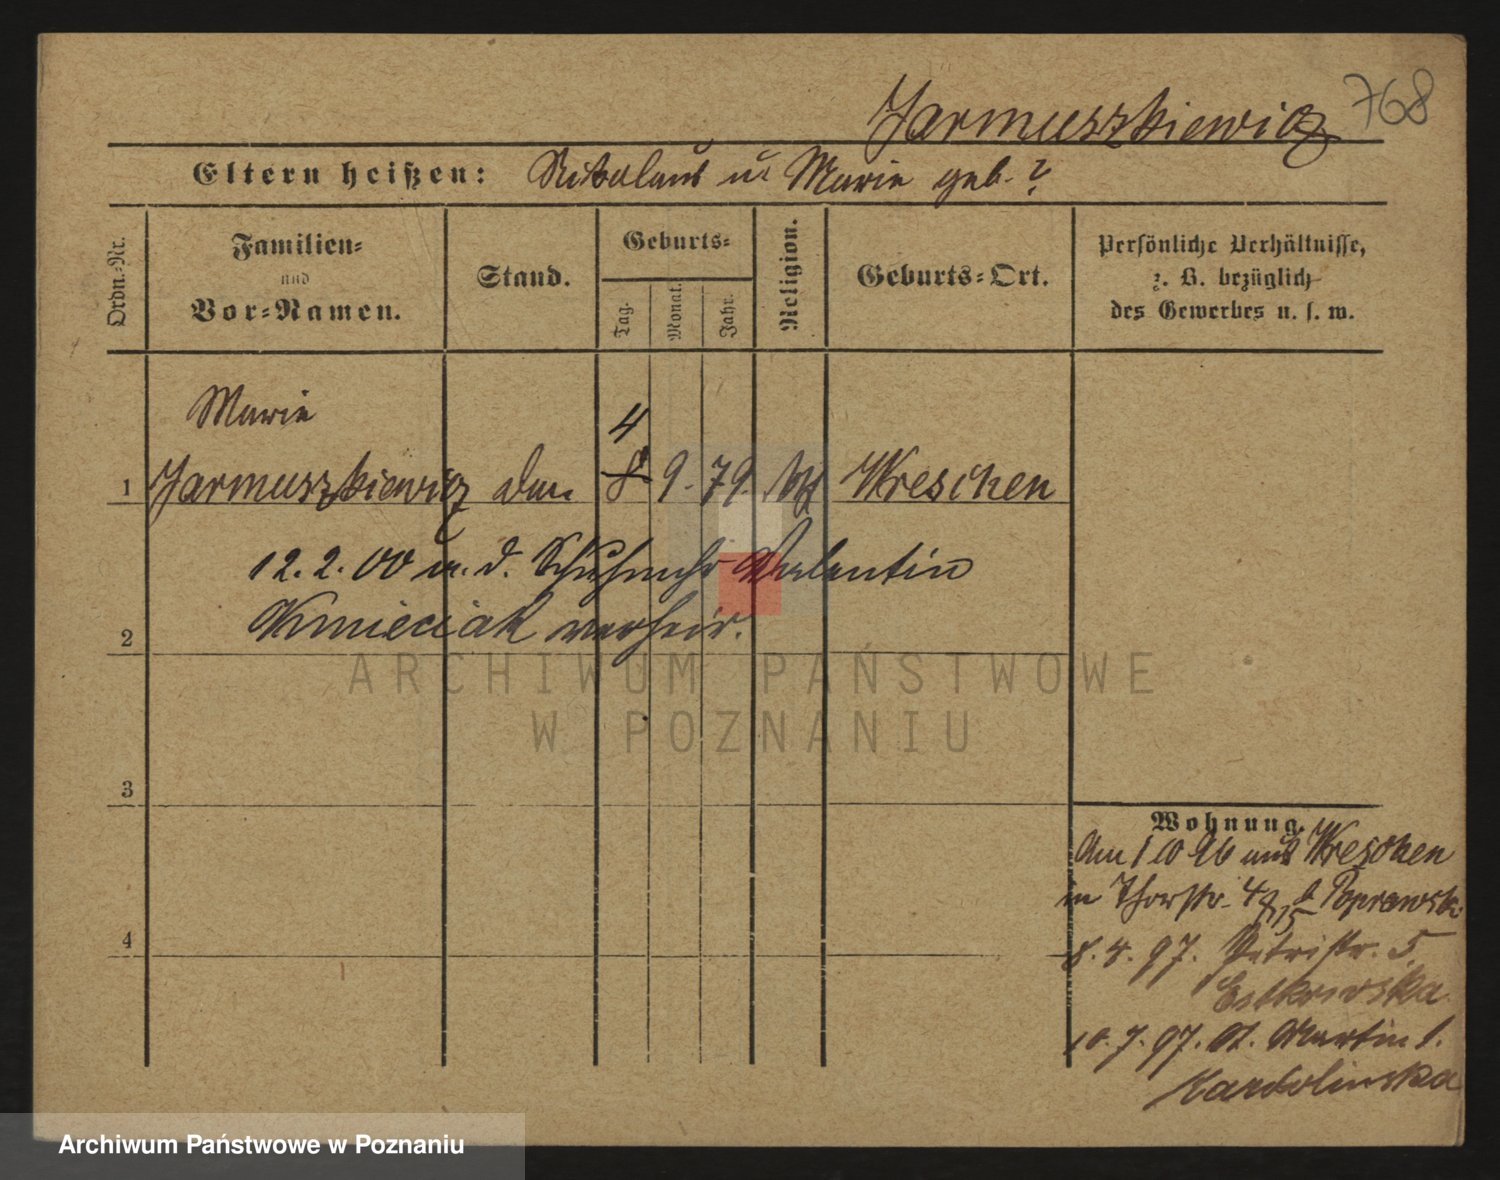 Jarmuszkiewicz 768
Eltern heißen: Nikolaus u. Marie geb. ?
Ordn.-Nr.
Familien-
und
Vor-Namen.
Stand.
Geburts-
Tag.
Monat.
Jahr.
Religion.
Geburts-Ort.
Persönliche Verhältnisse,
z. B. bezüglich
des Gewerbes u. s. w.
Marie
4
1 Jarmuszkiewicz 8 9. 79. Wreschen
12. 2. 00 m. d. Schuhmchr Valentin
2 Kmieciak verheir.
ARCHIWUM PAŃSTWOWE
W POZNANIU
3
4
Wohnung.
Am 1 10 96 aus Wreschen
in Thorstr. 4 Poprawski
8. 4. 97. Petristr. 5.
10. 7. 97. St. Martin 1.
Kardolinska
Archiwum Państwowe w Poznaniu